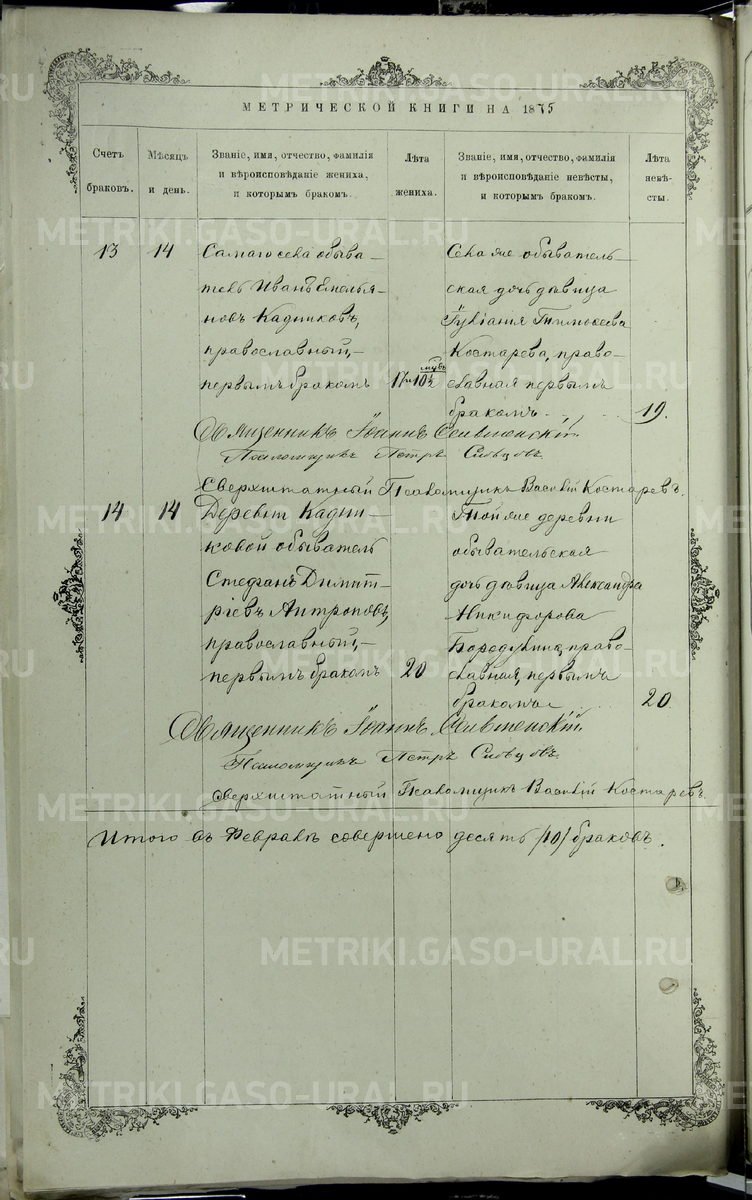 МЕТРИЧЕСКОЙ КНИГИ НА 1875
Счетъ браковъ.
Мѣсяцъ и день.
Званіе, имя, отчество, фамилія
и вѣроисповѣданіе жениха,
и которымъ бракомъ.
Лѣта жениха.
Званіе, имя, отчество, фамилія
и вѣроисповѣданіе невѣсты,
и которымъ бракомъ.
Лѣта невѣсты.
13
14
Самаго села обыва-
тель Иванъ Емелья-
новъ Кадниковъ,
православный,
первымъ бракомъ
17 и 10½
Села же обыватель-
ская дочь дѣвица
Іуліанія Тимоѳеева
Костарева, право-
славная первымъ
бракомъ
19.
Священникъ Іоаннъ
Псаломщикъ Петръ Сивцовъ
Сверхштатный Псаломщикъ Василій Костаревъ.
14
14
Деревни Кадни-
ковой обыватель
Стефанъ Димит-
ріевъ Антроповъ,
православный,
первымъ бракомъ
20
Той же деревни
обывательская
дочь дѣвица Александра
Никифорова
Бородулина, право-
славная, первымъ
бракомъ
20.
Священникъ Іоаннъ
Псаломщикъ Петръ Сивцовъ
Сверхштатный Псаломщикъ Василій Костаревъ.
Итого въ Февралѣ совершено десять /10/ браковъ.
METRIKI.GASO-URAL.RU